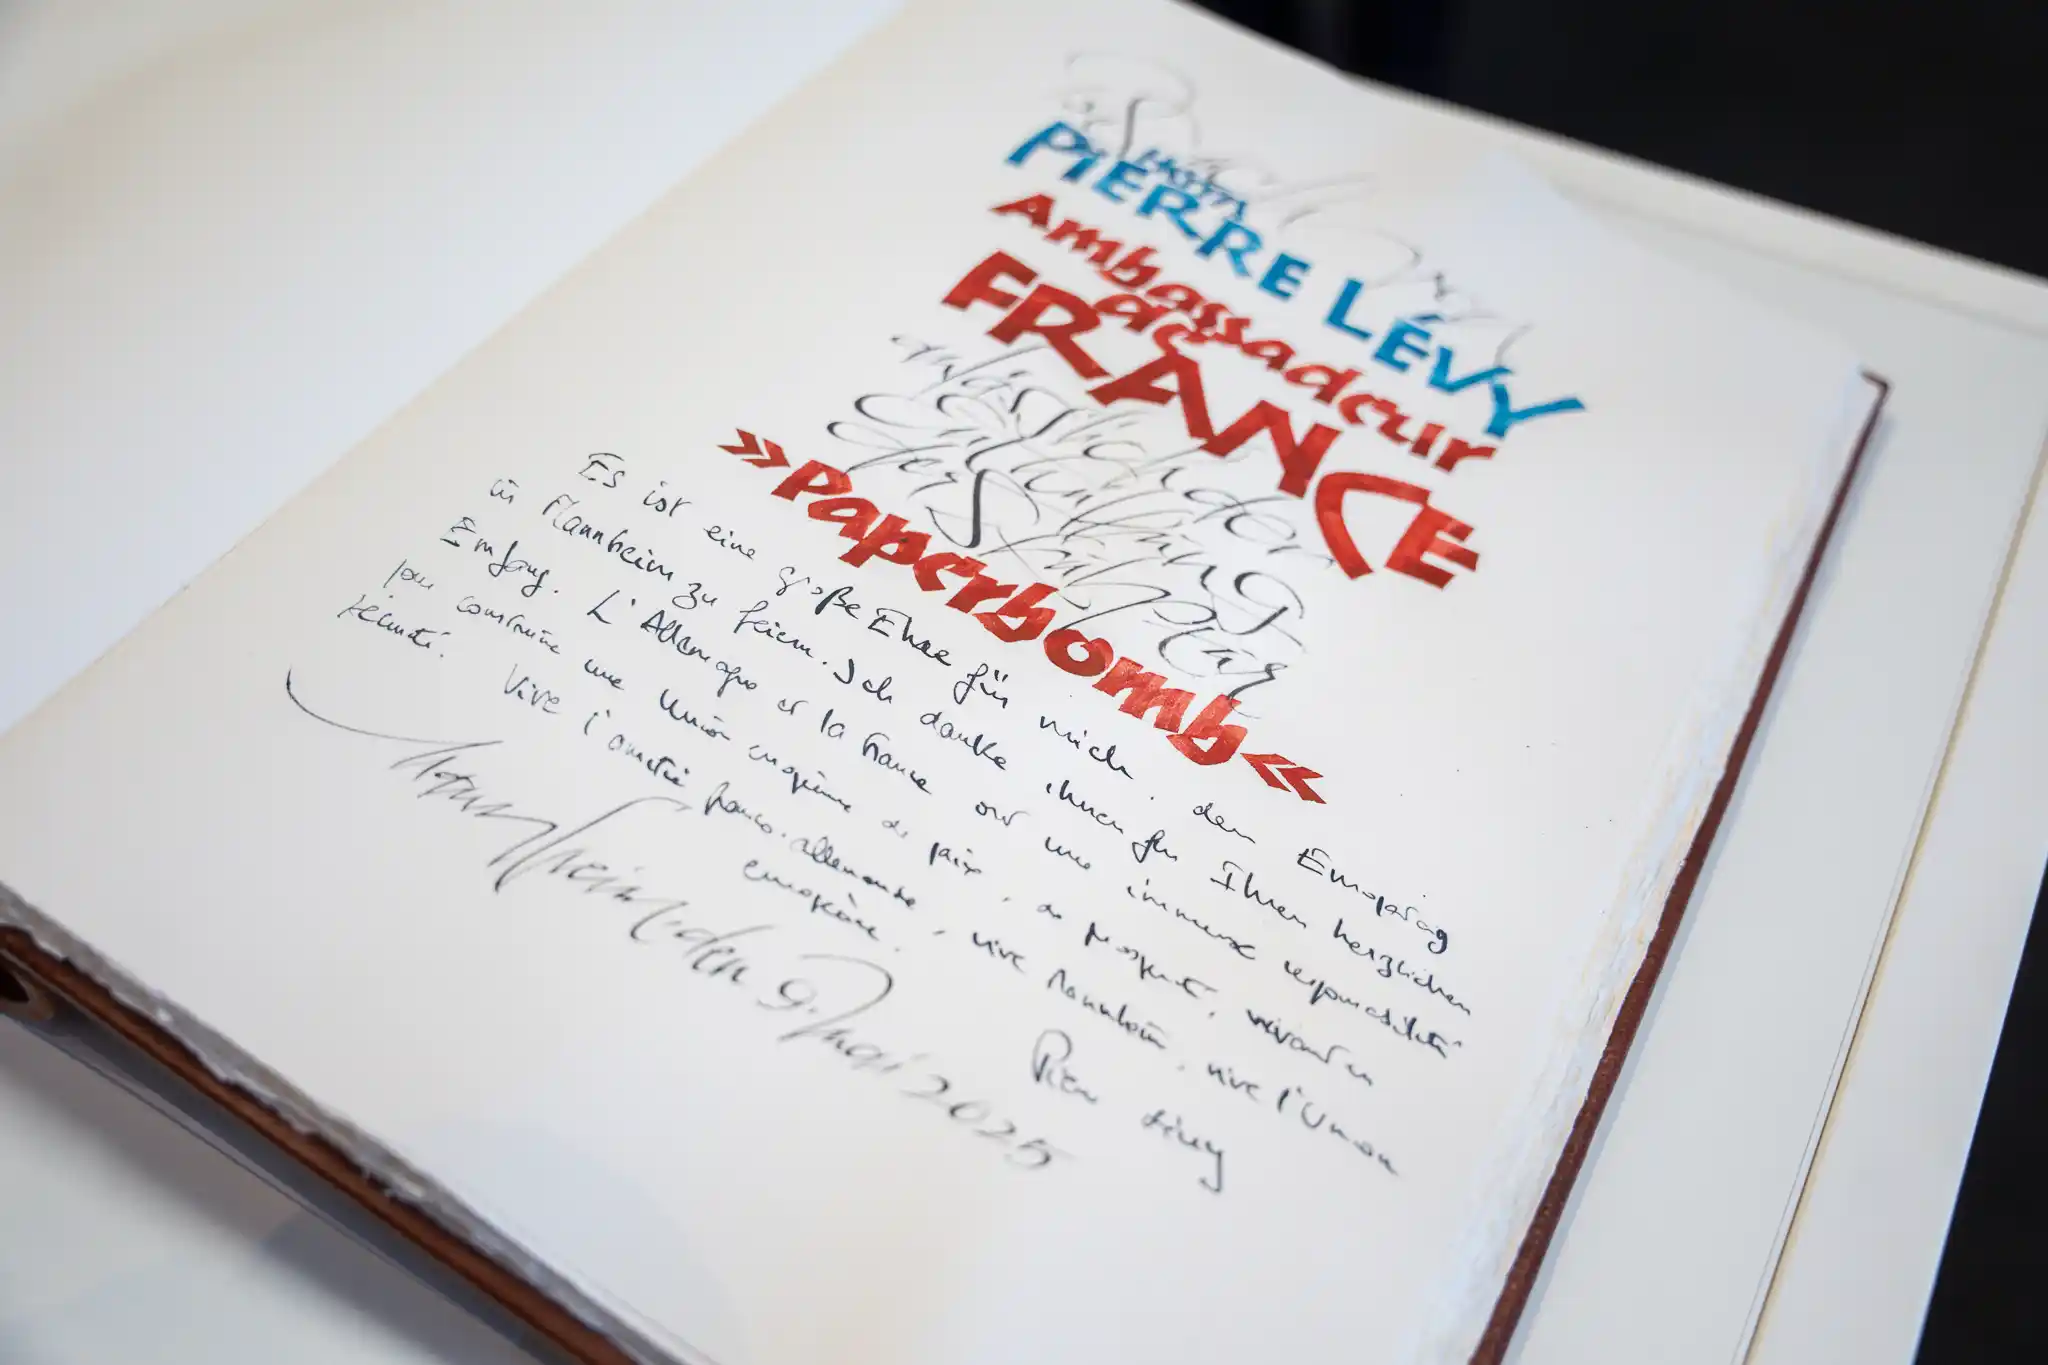 Besuch
von
PIERRE LÉVY
Ambassadeur
de
FRANCE
anlässlich der
Enthüllung
der Skulptur
»Paperbomb«
Es ist eine große Ehre für mich, den Europatag
in Mannheim zu feiern. Ich danke Ihnen für Ihren herzlichen
Emfang. L'Allemagne et la France ont une immense responsabilité
pour construire une Union européenne de paix, de prospérité, vivant en
sécurité. Vive l'amitié franco-allemande, vive Mannheim, vive l'Union
européenne.
Pierre Lévy
Mannheim, den 9. Mai 2025